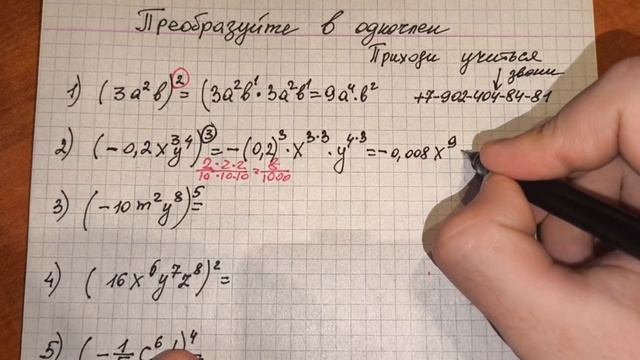 Преобразуйте в одночлен
Приходи учиться
звони
+7-902-404-84-81
1) (3a²b)² = (3a²b¹·3a²b¹ = 9a⁴·b²
2) (-0,2x³y⁴)³ = -(0,2)³·x³·³·y⁴·³ = -0,008x⁹
2/10·2/10·2/10 = 8/1000
3) (-10m²y⁸)⁵ =
4) (16x⁶y⁷z⁸)² =